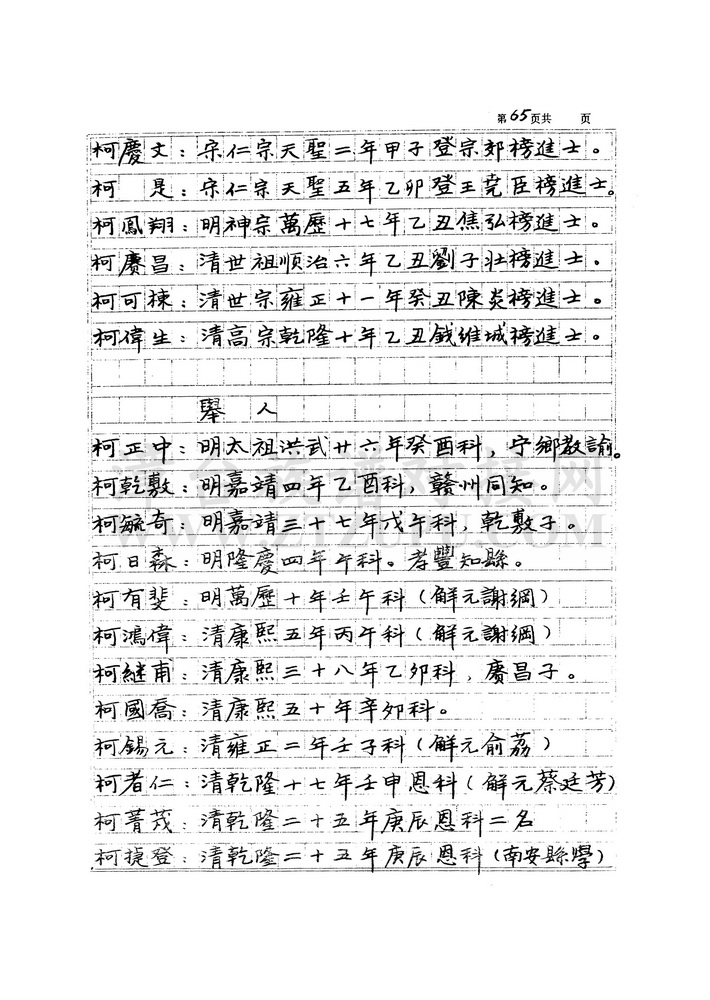 第65页共 页
柯慶文：宋仁宗天聖二年甲子登宗郊榜進士。
柯 是：宋仁宗天聖五年乙卯登王堯臣榜進士。
柯鳳翔：明神宗萬歷十七年乙丑焦弘榜進士。
柯賡昌：清世祖順治六年乙丑劉子壯榜進士。
柯可棟：清世宗雍正十一年癸丑陳炎榜進士。
柯偉生：清高宗乾隆十年乙丑錢維城榜進士。
舉 人
柯正中：明太祖洪武廿六年癸酉科，宁鄉教諭。
柯乾敷：明嘉靖四年乙酉科，贛州同知。
柯毓奇：明嘉靖三十七年戊午科，乾敷子。
柯日森：明隆慶四年午科。孝豐知縣。
柯有斐：明萬歷十年壬午科（解元謝綱）
柯鴻偉：清康熙五年丙午科（解元謝綱）
柯継甫：清康熙三十八年乙卯科，賡昌子。
柯國喬：清康熙五十年辛卯科。
柯錫元：清雍正二年壬子科（解元俞荔）
柯者仁：清乾隆十七年壬申恩科（解元蔡廷芳）
柯菁莪：清乾隆二十五年庚辰恩科二名
柯捷登：清乾隆二十五年庚辰恩科（南安縣學）
漳台族譜对接网
WWW.ZTZUPU.COM